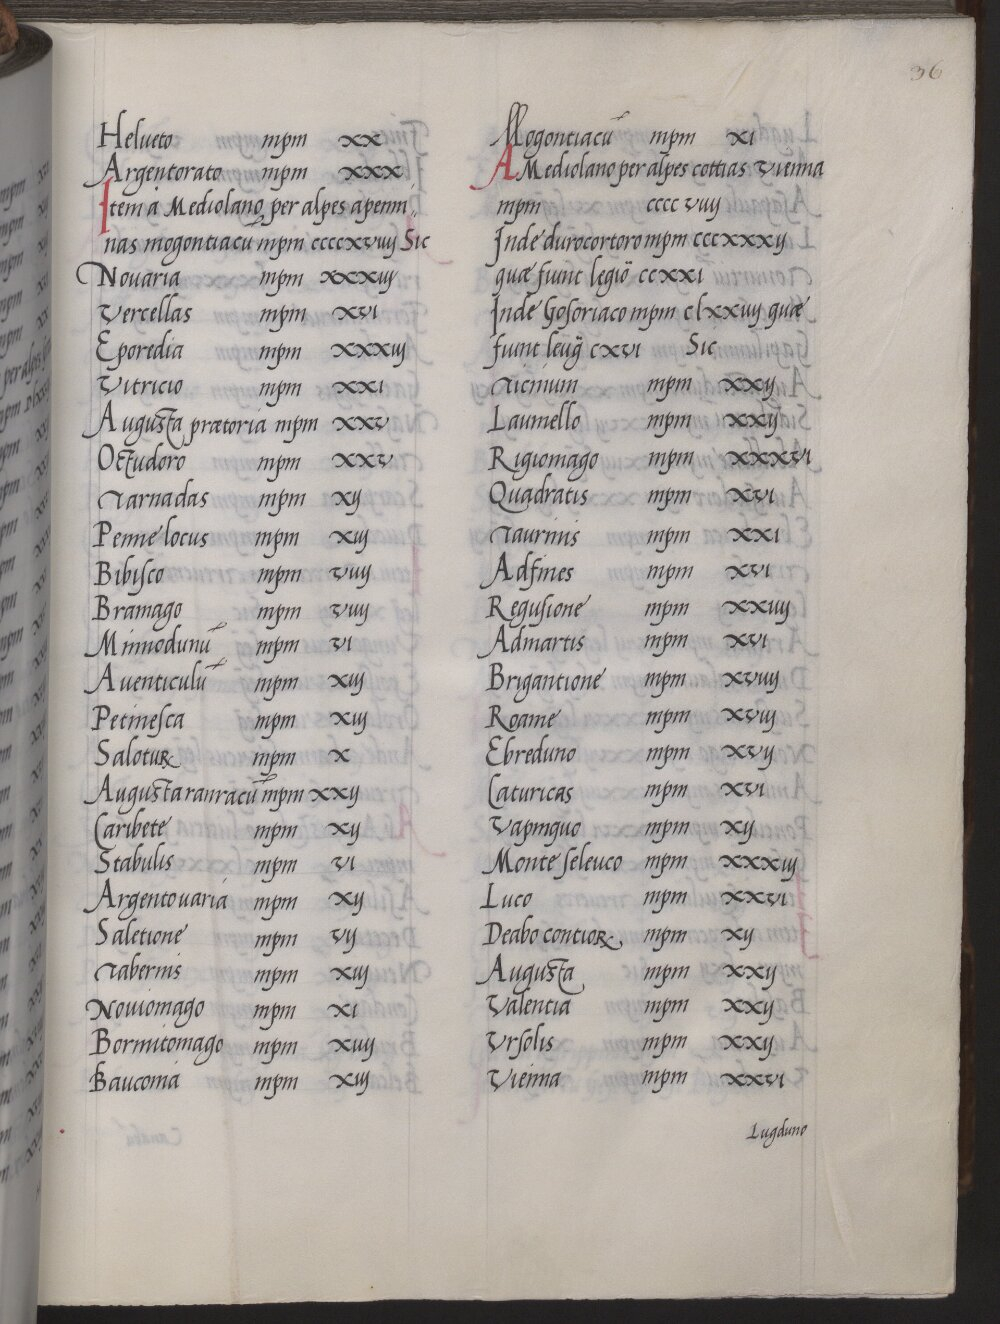 36
Helueto mpm xx
Argentorato mpm xxx
Item à Mediolano per alpes apenni
nas mogontiacū mpm ccccxviiij Sic
Novaria mpm xxxiij
Vercellas mpm xvi
Eporedia mpm xxxiij
Vitricio mpm xxi
Augusta prætoria mpm xxv
Octudoro mpm xxv
Tarnadas mpm xij
Penne locus mpm xiij
Bibisco mpm viiij
Bramago mpm viiij
Minnodunū mpm vi
Auenticulū mpm xiij
Petinesca mpm xiij
Salotuꝝ mpm x
Augusta ranracū mpm xxij
Caribete mpm xij
Stabulis mpm vi
Argentouaria mpm xij
Saletione mpm vij
Tabernis mpm xiij
Nouiomago mpm xi
Bormitomago mpm xiiij
Bauconia mpm xiij
Mogontiacū mpm xi
A Mediolano per alpes cottias vienna
mpm cccc viiij
Inde durocortoro mpm cccxxxij
quæ fiunt legiō ccxxi
Inde Gosoriaco mpm clxxiiij quæ
fiunt leug̃ cxvi Sic
Ticinum mpm xxij
Laumello mpm xxij
Rigiomago mpm xxxvi
Quadratis mpm xvi
Taurinis mpm xxi
Adfines mpm xvi
Regusione mpm xxiiij
Admartis mpm xvi
Brigantione mpm xviiij
Roame mpm xviij
Ebreduno mpm xvij
Caturicas mpm xvi
Vapinquo mpm xij
Monte seleuco mpm xxxiij
Luco mpm xxvi
Deabo contioꝝ mpm xij
Augusta mpm xxij
Valentia mpm xxij
Vrsolis mpm xxij
Vienna mpm xxvi
Lugduno